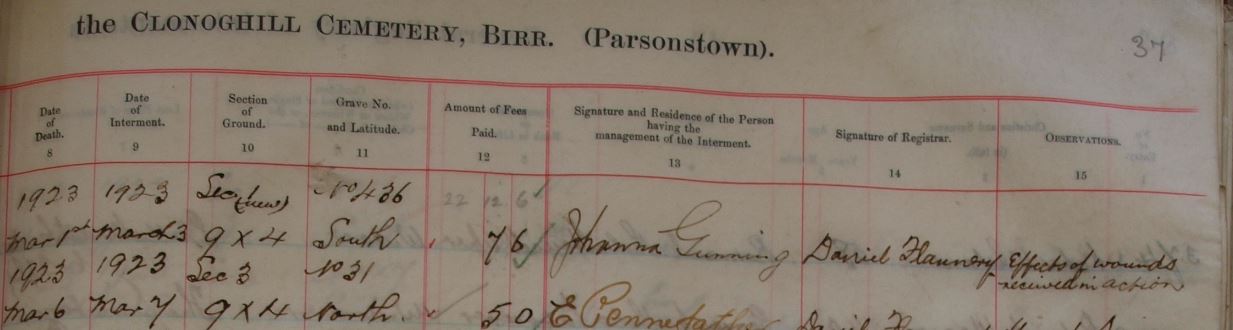 the CLONOGHILL CEMETERY, BIRR. (Parsonstown).
37
Date of Death.
8
Date of Interment.
9
Section of Ground.
10
Grave No. and Latitude.
11
Amount of Fees Paid.
12
Signature and Residence of the Person having the management of the Interment.
13
Signature of Registrar.
14
OBSERVATIONS.
15
1923 1923 Sec (new) No 436 22 12 6
Mar 1st March 3 9 X 4 South 7 6 Johanna Gunning Daniel Flannery Effects of wounds
received in action
1923 1923 Sec 3 No 31
Mar 6 Mar 7 9 X 4 North 5 0 E Pennefather Daniel